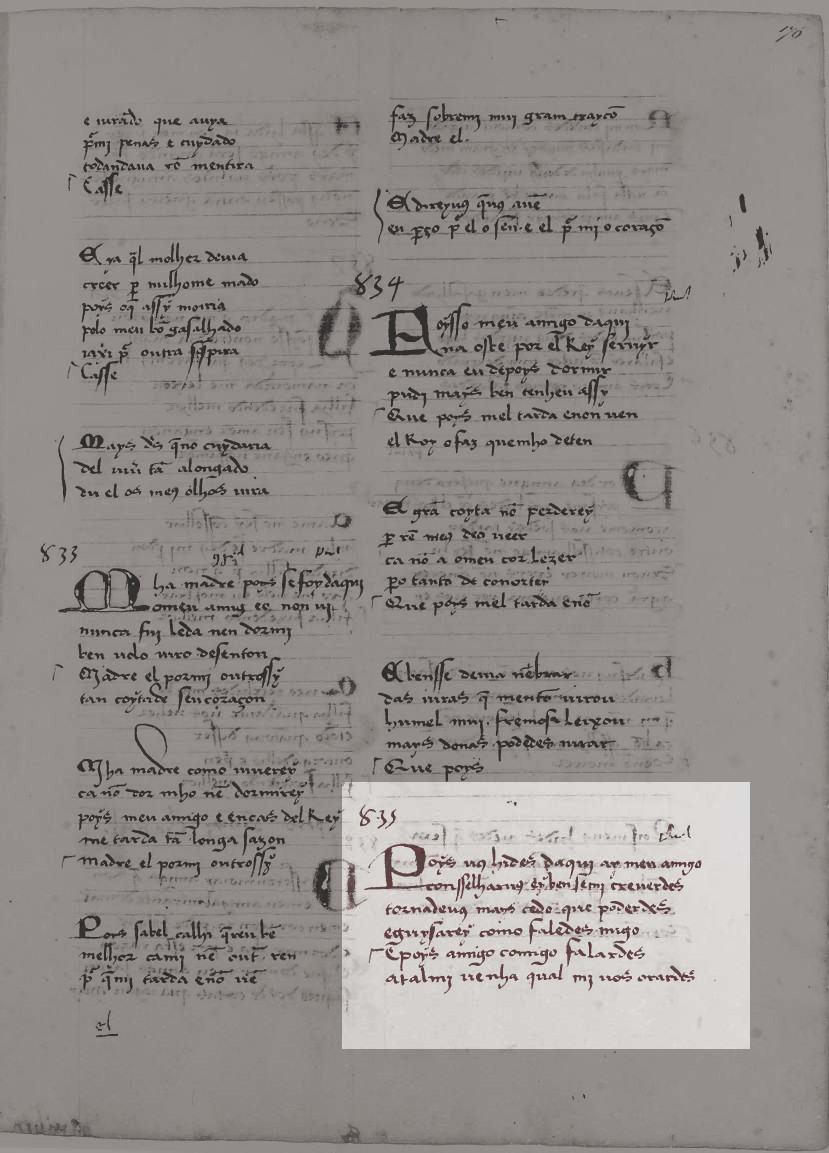 176
e iurado que auya
p̃mi penas e cuydado
todandaua cõ mentira
Casse
E ya q̃l molher deuia
creer per nulhome nado
poys oq̃ assy moiria
polo meu bõ gasalhado
ia p̃ outra sospira
Casse
Mays ds̃ q̃no cuydaria
del uiũ tã alongado
du el os meꝯ olhos uira
833
M ha madre poys se foy daqui
o meu amig e o non ui
nunca fui leda nen dormi
ben uolo iuro desenton
Madre el por mi outrossy
tan coytade seu coraçon
Mha madre como uiuerey
ca nõ dormho nẽ dormirey
poys meu amigo e en cas del Rey
me tarda tã longa sazon
madre el por mi outrossy
Poys sabel ca lhi q̃reu bẽ
melhor ca mi nẽ out̃ ren
p̃ q̃mi tarda enõ uẽ
el
faz sobremi mui gram trayçõ
Madre el.
E direyuꝯ q̃ uꝯ auẽ
eu perço p̃ el o sen e el p̃ mi o coraçõ
834
F oysso meu amigo daqui
na oste por el Rey seruyr
e nunca eu depoys dormir
pudi mays ben tenheu assy
Que poys mel tarda enon uen
el Rey o faz que mho deten
E grã coyta nõ perderey
per rẽ meꝯ deo ueer
ca nõ a o meu cor lezer
pero tanto de conorter
Que poys mel tarda enõ
E bensse deuia nẽbrar
das iuras q̃ mentõ iurou
hu mel mui fremosa leixou
mays donas podedes iurar
Que poys
835
P oys uꝯ hides daqui ay meu amigo
conselharuꝯ ey ben se mi creuerdes
tornadeuꝯ mays cedo que poderdes
e guysarey como faledes migo
E poys amigo comigo falardes
atal mi uenha qual mi uos orardes